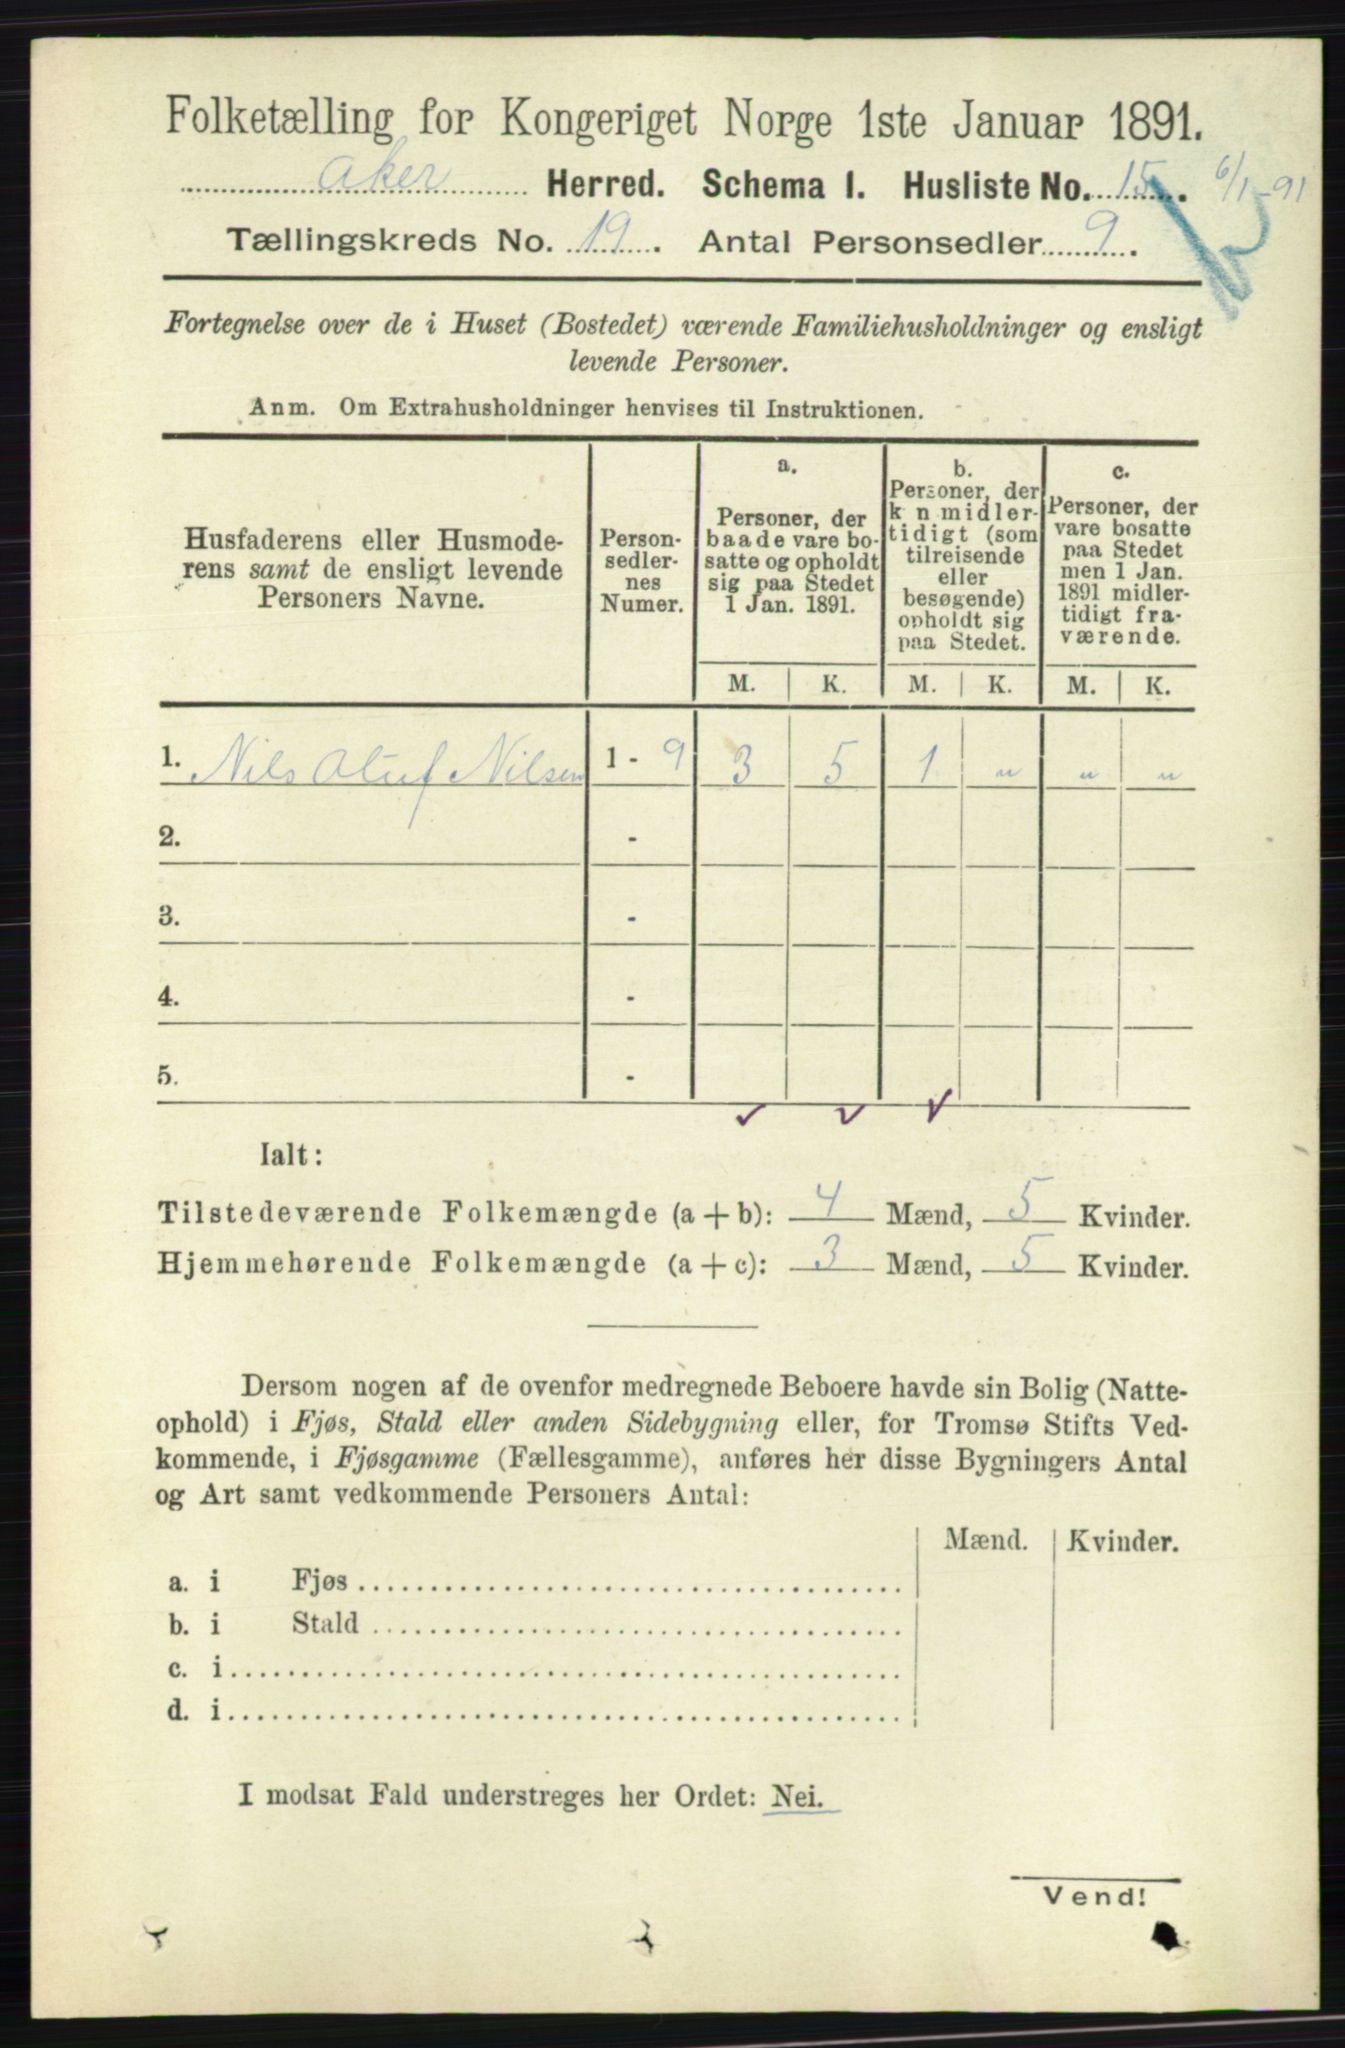 Folketælling for Kongeriget Norge 1ste Januar 1891.
Aker Herred. Schema I. Husliste No. 15. 6/1-91
Tællingskreds No. 19. Antal Personsedler 9.
Fortegnelse over de i Huset (Bostedet) værende Familiehusholdninger og ensligt
levende Personer.
Anm. Om Extrahusholdninger henvises til Instruktionen.
Husfaderens eller Husmode-
rens samt de ensligt levende
Personers Navne.
Person-
sedler-
nes
Numer.
a.
Personer, der
baade vare bo-
satte og opholdt
sig paa Stedet
1 Jan. 1891.
b.
Personer, der
k n midler-
tidigt (som
tilreisende
eller
besøgende)
opholdt sig
paa Stedet.
c.
Personer, der
vare bosatte
paa Stedet
men 1 Jan.
1891 midler-
tidigt fra-
værende.
M. K. M. K. M. K.
1. Nils Oluf Nilsen 1 - 9 3 5 1 " " "
2. -
3. -
4. -
5. -
Ialt:
Tilstedeværende Folkemængde (a + b): 4 Mænd, 5 Kvinder.
Hjemmehørende Folkemængde (a + c): 3 Mænd, 5 Kvinder.
Dersom nogen af de ovenfor medregnede Beboere havde sin Bolig (Natte-
ophold) i Fjøs, Stald eller anden Sidebygning eller, for Tromsø Stifts Ved-
kommende, i Fjøsgamme (Fællesgamme), anføres her disse Bygningers Antal
og Art samt vedkommende Personers Antal:
Mænd. Kvinder.
a. i Fjøs
b. i Stald
c. i
d. i
I modsat Fald understreges her Ordet: Nei.
Vend!